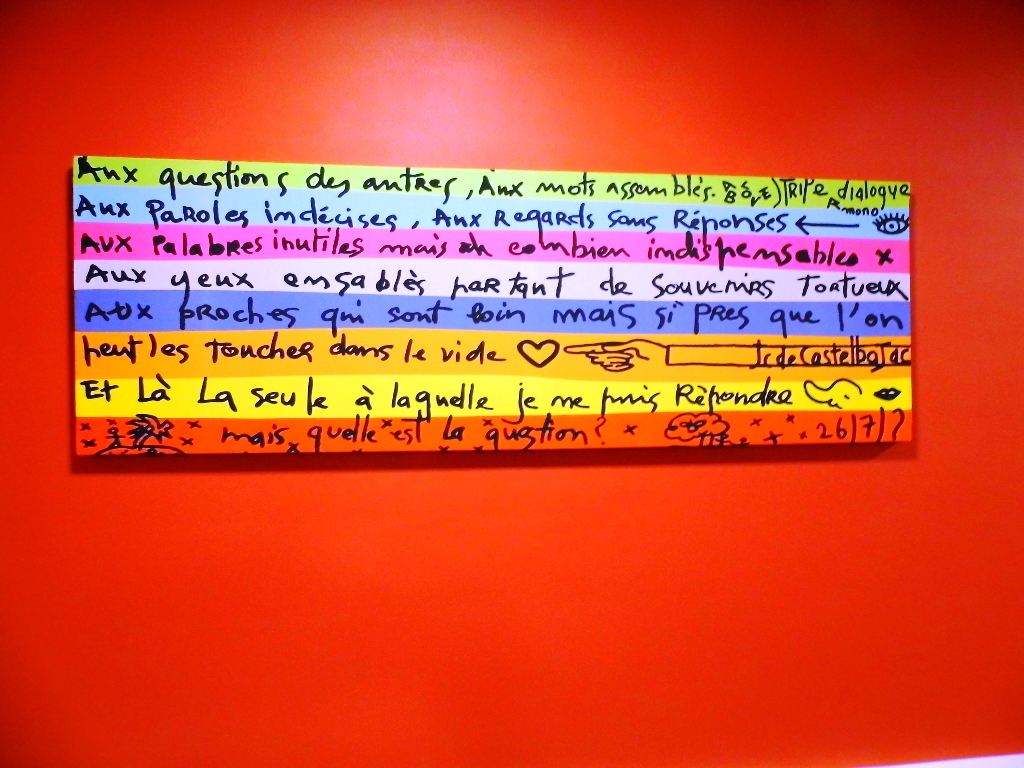 Aux questions des autres, Aux mots assemblés. TRIPe dialogue
Aux PaRoles indécises, Aux RegaRds sans Réponses ←
Aux Palabres inutiles mais combien indispensables x
Aux yeux ensablès paRtant de SouveniRs ToRtueux
Aux pRoches qui sont loin mais si PRes que l'on
peut les Toucher dans le vide JcdeCastelbaJac
Et Là La seule à laquelle je ne puis Rèpondre
mais quelle est La question? 26/7/?